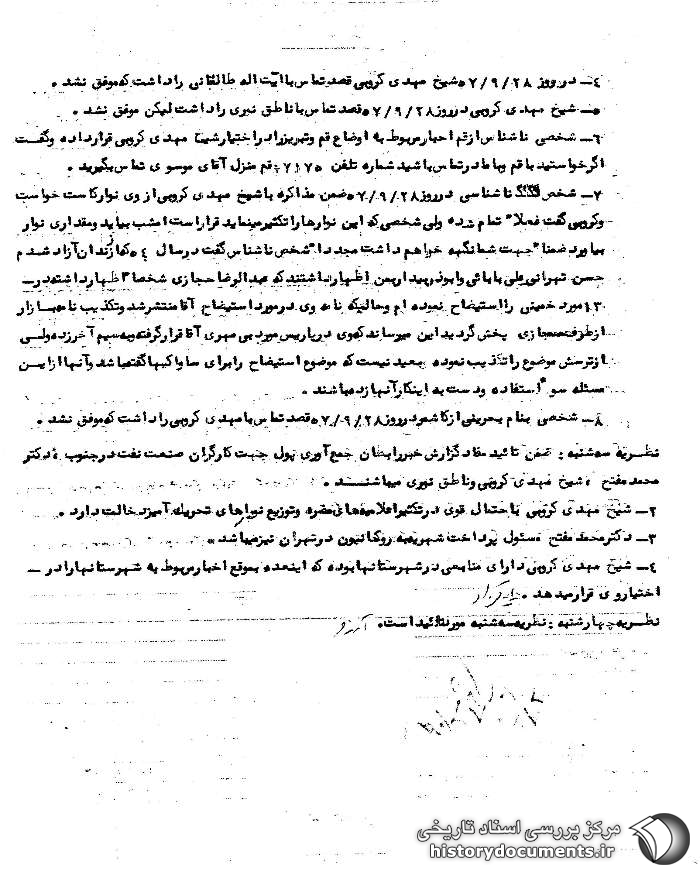 ٤ــ در روز ٥٧/٩/٢٨ شیخ مهدی کروبی قصد تماس با آیت اله طالقانی را داشت که موفق نشد .
٥ــ شیخ مهدی کروبی در روز ٥٧/٩/٢٨ قصد تماس با ناطق نوری را داشت لیکن موفق نشد .
٦ــ شخصی ناشناس از قم اخبار مربوط به اوضاع قم و تبریز را در اختیار شیخ مهدی کروبی قرار داده و گفت
اگر خواستید با قم و با ما در تماس باشید شماره تلفن قم منزل آقای موسوی تماس بگیرید .
٧ــ شخص ناشناسی در روز ٥٧/٩/٢٨ ضمن مذاکره با شیخ مهدی کروبی از وی نوار کاست خواست
و کروبی گفت فعلا" تمام شده ولی شخصی که این نوارها را تکثیر مینماید قرار است امشب بیاید و مقداری نوار
بیاورد ضمنا" جهت شما نگه خواهم داشت مجددا" شخص ناشناس گفت در سال ٥٤ که از زندان آزاد شدم
حسن تهرانی و علی بابائی و ابوذر بیدار بمن اظهار داشتند که عبدالرضا حجازی شخصا" اظهار داشته در ــ
١٣ مورد خمینی را استیضاح نموده ام و حالیکه نامه وی در مورد استیضاح آقا منتشر شد و تکذیب نامه بازار
از طرف حجازی پخش گردید این میرساند که وی در پاریس مورد بی مهری آقا قرار گرفته و به سیم آخر زده ولی
از ترسش موضوع را تکذیب نموده بعید نیست که موضوع استیضاح را برای ساواکیها گفته باشد و آنها از این
مسئله سوء استفاده و دست به اینکار آنها زده باشند .
٨ــ شخصی بنام بحرینی از کاشمر در روز ٥٧/٩/٢٨ قصد تماس با مهدی کروبی را داشت که موفق نشد .
نظریه سه شنبه : ضمن تائید مفاد گزارش خبر رابطان جمع آوری پول جهت کارگران صنعت نفت در جنوب ، دکتر
محمد مفتح ، شیخ مهدی کروبی و ناطق نوری میباشند .
٢ــ شیخ مهدی کروبی با حتمال قوی در تکثیر اعلامیه های مضره و توزیع نوارهای تحریک آمیز دخالت دارد .
٣ــ دکتر محمد مفتح مسئول پرداخت شهریه به روحانیون در تهران نیز میباشد .
٤ــ شیخ مهدی کروبی دارای منابعی در شهرستانها بوده که اینعده بموقع اخبار مربوط به شهرستانها را در ــ
اختیار وی قرار میدهد .
نظریه چهارشنبه : نظریه سه شنبه مورد تائید است .
مرکز بررسی اسناد تاریخی
historydocuments.ir